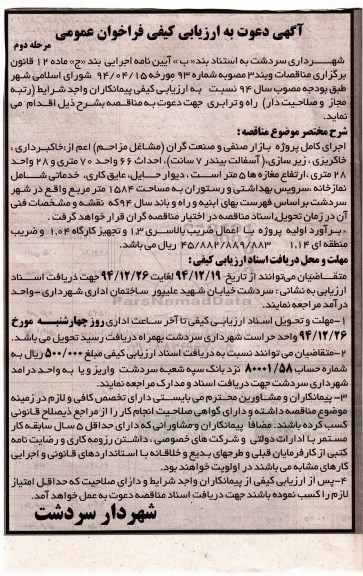 آگهی دعوت به ارزیابی کیفی فراخوان عمومی
مرحله دوم
شهرداری سردشت به استناد بند« ب» آیین نامه اجرایی بند «ج» ماده ۱۲ قانون
برگزاری مناقصات وبند۳ مصوبه شماره ۹۳ مورخه ۹۴/۰۴/۱۵ شورای اسلامی شهر
طبق بودجه مصوب سال ۹۴ نسبت به ارزیابی کیفی پیمانکاران واجد شرایط (رتبه
مجاز و صلاحیت دار) راه و ترابری جهت دعوت به مناقصه بشرح ذیل اقدام می
نماید.
شرح مختصر موضوع مناقصه :
اجرای کامل پروژه بازار صنفی و صنعت گران (مشاغل مزاحم) اعم از:خاکبرداری ،
خاکریزی ، زیر سازی،( آسفالت بیندر ۷ سانت)، احداث ۶۶ واحد ۷۰ متری و ۲۸ واحد
۲۸ متری ، ارتفاع مغازه ها ۵ متر است ، دیوار حایل، عایق کاری، خدماتی شامل
نمازخانه ،سرویس بهداشتی و رستوران به مساحت ۱۵۸۴ متر مربع واقع در شهر
سردشت بر اساس فهرست بهای ابنیه و راه و باند سال ۹۴ که نقشه و مشخصات فنی
آن در زمان تحویل اسناد مناقصه در اختیار مناقصه گران قرار خواهد گرفت .
- برآورد اولیه پروژه با اعمال ضریب بالاسری ۱,۳ و تجهیز کارگاه ۱,۰۴ و ضریب
منطقه ای ۱,۱۴ ۴۵/۸۸۲/۸۸۹/۸۸۳ ریال می باشد.
مهلت و محل دریافت اسناد ارزیابی کیفی:
متقاضیان می‌توانند از تاریخ ۹۴/۱۲/۱۹ لغایت ۹۴/۱۲/۲۶ جهت دریافت اسناد
ارزیابی به نشانی : سردشت خیابان شهید علیپور ساختمان اداری شهرداری -واحد
درآمد مراجعه نمایند.
۱-مهلت و تحویل اسناد ارزیابی کیفی تا آخر ساعت اداری روز چهارشنبه مورخ
۹۴/۱۲/۲۶ واحد حراست شهرداری سردشت بهمراه دریافت رسید تحویل می باشد.
۲-متقاضیان می توانند نسبت به دریافت اسناد ارزیابی کیفی مبلغ ۵۰۰/۰۰۰ ریال به
شماره حساب ۸۰۰۰۱/۵۸ نزد بانک سپه شعبه سردشت واریز و یا به واحد درآمد
شهرداری سردشت جهت دریافت اسناد و مدارک مراجعه نمایند.
۳- پیمانکاران و مشاورین محترم می بایستی دارای تخصص کافی و لازم در زمینه
موضوع مناقصه داشته و دارای گواهی صلاحیت انجام کار را از مراجع ذیصلاح قانونی
کسب کرده باشند. مضافا پیمانکاران و مشاورانی که دارای حداقل ۵ سال سابقه کار
مستمر با ادارات دولتی و شرکت های خصوصی ، داشتن رزومه کاری و رضایت نامه
کتبی از کارفرمایان قبلی و طرحهای بدیع و خلاقانه با استانداردهای قانونی و اجرایی
کارهای مشابه می باشند در اولویت خواهند بود.
۴-پس از ارزیابی کیفی از پیمانکاران واجد شرایط و دارای صلاحیت که حداقل امتیاز
لازم را کسب نموده باشند جهت دریافت اسناد مناقصه دعوت به عمل خواهد آمد.
شهردار سردشت